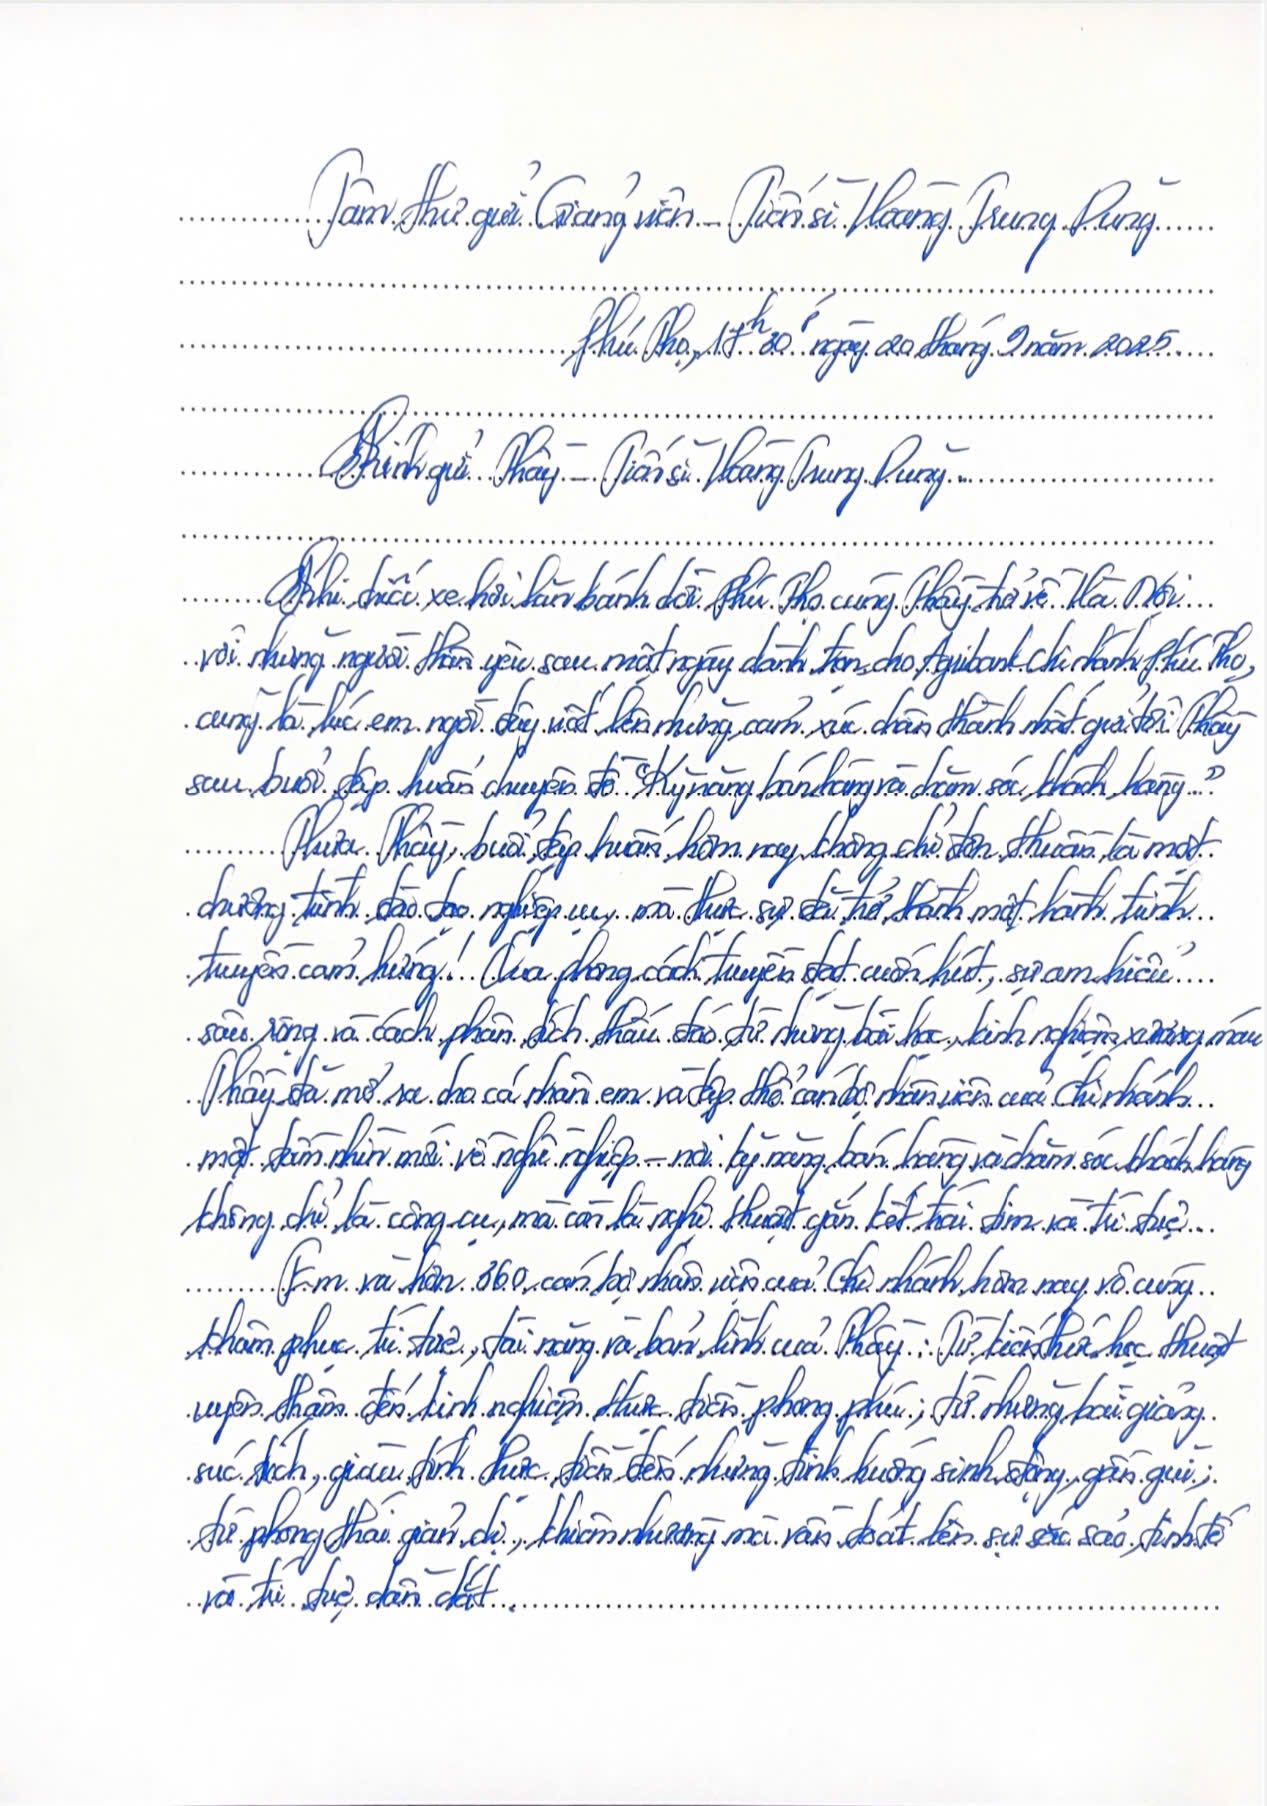 Tâm thư gửi Giảng viên - Tiến sĩ Hoàng Trung Dũng
Phú Thọ, 17h30' ngày 20 tháng 9 năm 2025
Kính gửi Thầy - Tiến sĩ Hoàng Trung Dũng
Khi chiếc xe hơi lăn bánh dời Phú Thọ cùng Thầy trở về Hà Nội
với những người thân yêu sau một ngày dành trọn cho Agribank Chi nhánh Phú Thọ,
cũng là lúc em ngồi đây viết lên những cảm xúc chân thành nhất gửi tới Thầy
sau buổi tập huấn chuyên đề "Kỹ năng bán hàng và chăm sóc khách hàng".
Thưa Thầy, buổi tập huấn hôm nay không chỉ đơn thuần là một
chương trình đào tạo nghiệp vụ, mà thực sự đã trở thành một hành trình
truyền cảm hứng! Qua phong cách truyền đạt cuốn hút, sự am hiểu
sâu rộng và cách phân tích thấu đáo từ những bài học, kinh nghiệm xương máu
Thầy đã mở ra cho cá nhân em và tập thể cán bộ nhân viên của Chi nhánh
một tầm nhìn mới về nghề nghiệp - nơi kỹ năng bán hàng và chăm sóc khách hàng
không chỉ là công cụ, mà còn là nghệ thuật gắn kết trái tim và trí tuệ.
Em và hơn 360 cán bộ nhân viên của Chi nhánh hôm nay vô cùng
khâm phục trí tuệ, tài năng và bản lĩnh của Thầy: Từ kiến thức học thuật
uyên thâm đến kinh nghiệm thực tiễn phong phú; từ những bài giảng
súc tích, giàu tính thực tiễn đến những tình huống sinh động, gần gũi;
từ phong thái giản dị, khiêm nhường mà vẫn toát lên sự sắc sảo, tinh tế
và trí tuệ dẫn dắt.